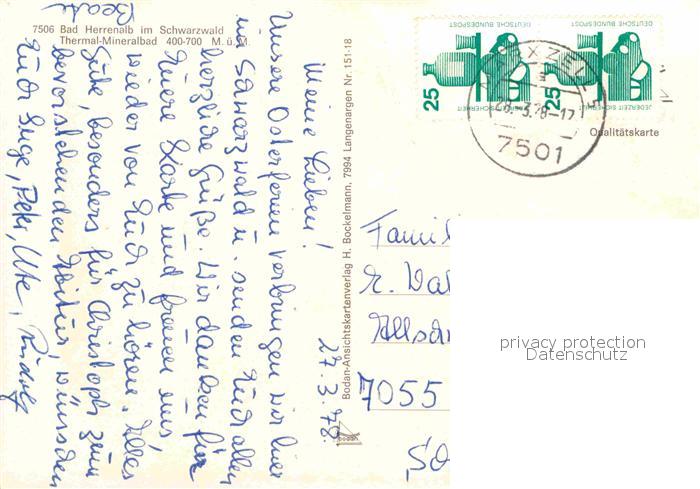 7506 Bad Herrenalb im Schwarzwald
Thermal-Mineralbad 400-700 M. ü. M.
Meine Lieben!
27.3.78
Unsere Osterferien verbringen wir hier
im Schwarzwald u. senden Euch allen
herzliche Grüße. Wir danken für
Euere Karte und freuen uns
wieder von Euch zu hören. Alles
Gute, besonders für Christoph zum
bevorstehenden Abitur, wünschen
Euch Inge, Peter, Ute, Rudolf
Beate
Bodan-Ansichtskartenverlag H. Bockelmann, 7994 Langenargen Nr. 151-18
bodan
DEUTSCHE BUNDESPOST
25
JEDERZEIT SICHERHEIT
DEUTSCHE BUNDESPOST
25
JEDERZEIT SICHERHEIT
28.-3.78-17
7501
Qualitätskarte
Famil
7055
privacy protection
Datenschutz